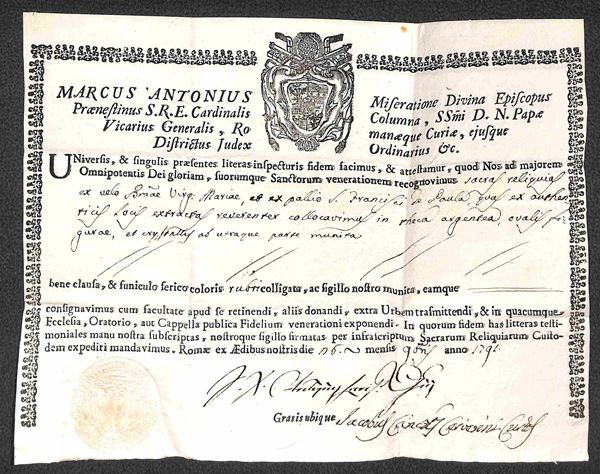 MARCUS ANTONIUS
Prænestinus S.R.E. Cardinalis
Vicarius Generalis, Ro
Districtus Judex
Miseratione Divina Episcopus
Columna, SSmi D. N. Papæ
manæque Curiæ, ejusque
Ordinarius &c.
Universis, & singulis præsentes literas inspecturis fidem facimus, & attestamur, quod Nos ad majorem
Omnipotentis Dei gloriam, suorumque Sanctorum venerationem recognovimus sacras reliquias
ex velo Bmæ Virg. Mariae, et ex pallio S. Francisci de Paula, quas ex authen
ticis locis extractas reverenter collocavimus in theca argentea, ovalis fi
gurae, et crystallis ab utraque parte munita
bene clausa, & funiculo serico coloris rubri colligata, ac sigillo nostro munita, eamque
consignavimus cum facultate apud se retinendi, aliis donandi, extra Urbem trasmittendi, & in quacumque
Ecclesia, Oratorio, aut Cappella publica Fidelium venerationi exponendi. In quorum fidem has litteras testi-
moniales manu nostra subscriptas, nostroque sigillo firmatas per infrascriptum Sacrarum Reliquiarum Custo-
dem expediri mandavimus. Romæ ex Ædibus nostris die mensis anno
Gratis ubique Jacobus